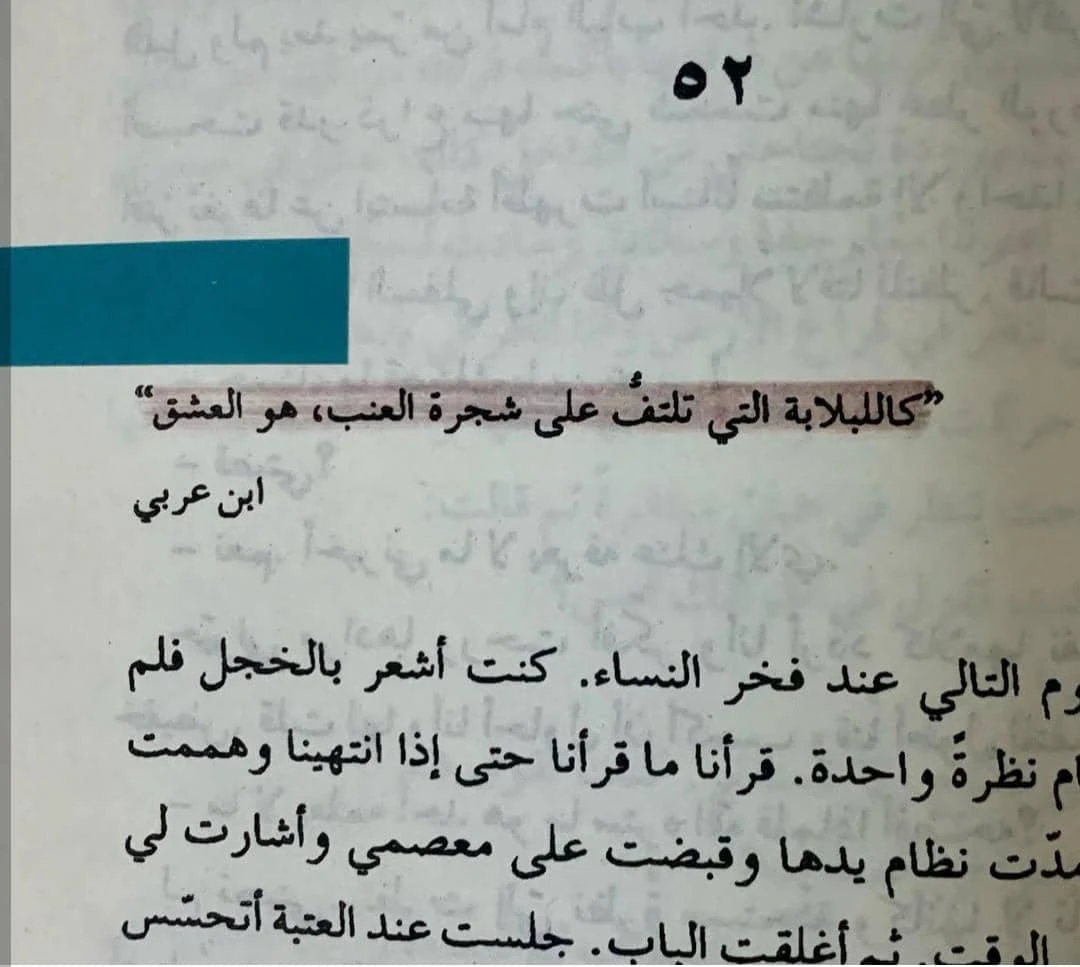 ٥٢
”كاللبلابة التي تلتفُّ على شجرة العنب، هو العشق“
ابن عربي
التالي عند فخر النساء. كنت أشعر بالخجل فلم
نظرةً واحدة. قرأنا ما قرأنا حتى إذا انتهينا وهممت
مدّت نظام يدها وقبضت على معصمي وأشارت لي
الوقت. ثم أغلقت الباب. جلست عند العتبة أتحسّس